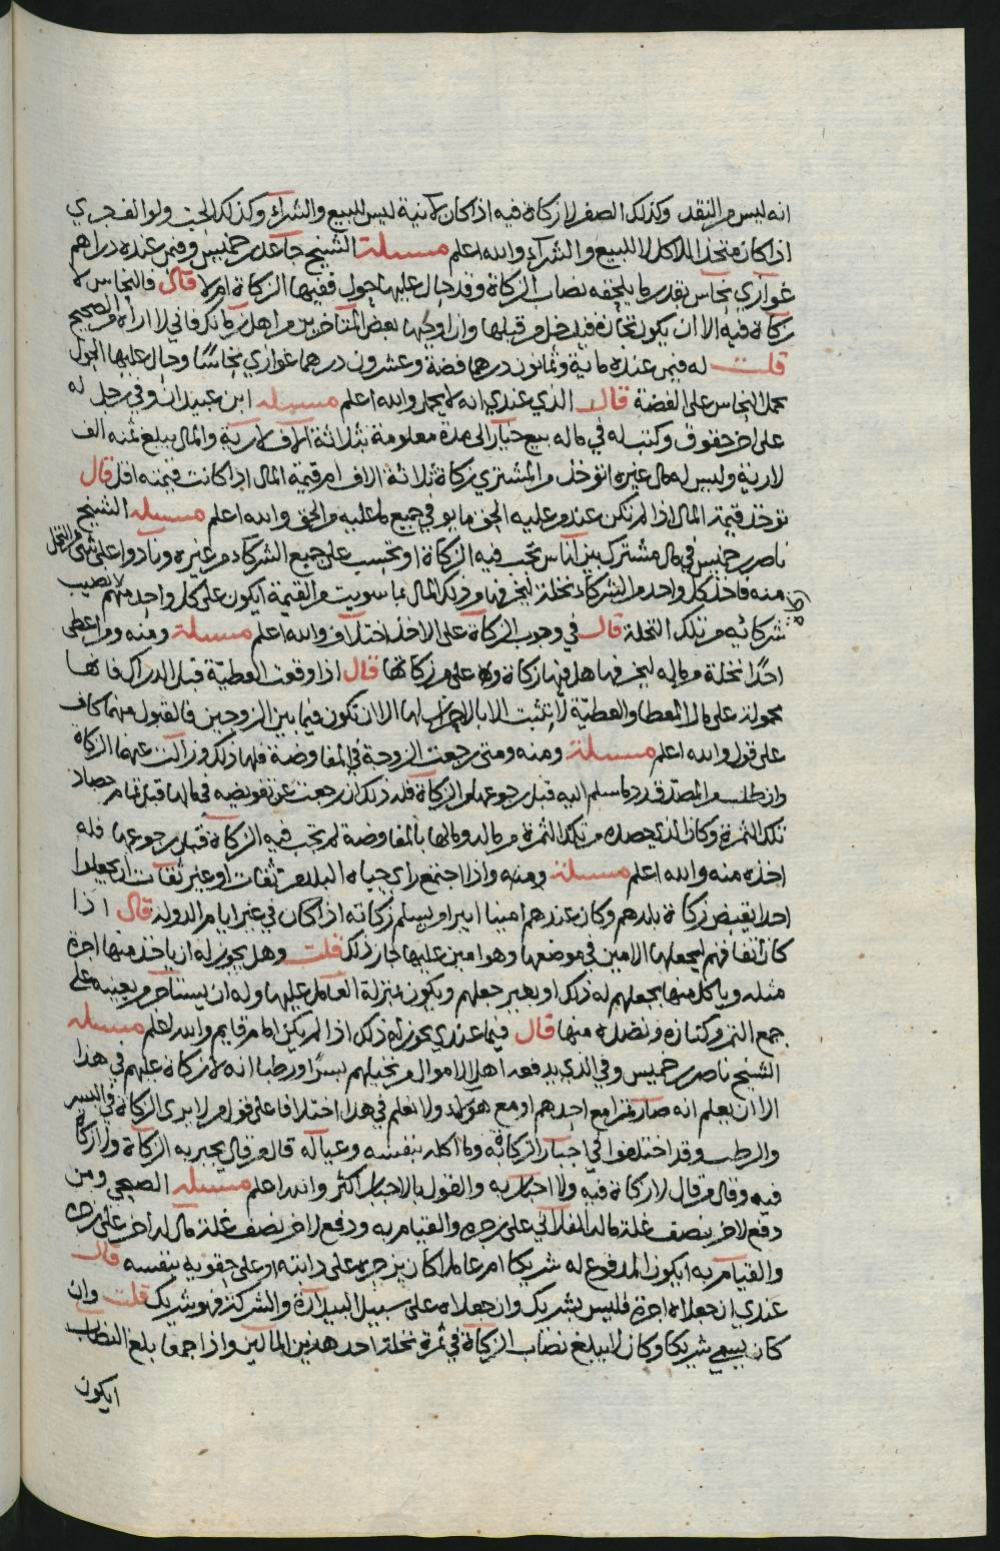 انه ليس من النقد وكذلك الصفر لا زكاة فيه اذا كان لانية ليس للبيع والشراء وكذلك الحب ولو الف جري
اذا كان متخذا للاكل لا للبيع والشراء والله اعلم مسئلة الشيخ جاعد بن خميس وفيمن عنده دراهم
غوازي نحاس بقدر ما يلحقه نصاب الزكاة وقد حال عليها حول ففيها الزكاة ام لا قال فالنحاس لا
زكاة فيه الا ان يكون تجارة فيدخل من قبلها وان اوجبها بعض المتأخرين من اهل زمانك فاني لا اراه من الصحيح
قلت له فيمن عنده مائة وثمانون درهما فضة وعشرون درهما غوازي نحاسًا وحال عليها الحول
يحمل النحاس على الفضة قال الذي عندي انه لا يحمل والله اعلم مسئله ابن عبيدان وفي رجل له
على اخر حقوق وكتب له في ماله بيع خيار الى مدة معلومة بثلاثة الاف لارية والمال يبلغ ثمنه الف
لارية وليس له مال غيره اتوخذ من المشتري زكاة ثلاثة الاف ام قيمة المال اذا كانت قيمته اقل قال
توخذ قيمة المال اذا لم تكن عند من عليه الحق ما يوفي جميع ما عليه من الحق والله اعلم مسئله الشيخ
ناصر بن خميس في مال مشترك بين اناس تجب فيه الزكاة او تحسب على جميع الشركاء من غيره ونادوا على شيء من النخل
منه فاخذ كل واحد من الشركاء نخلة ليخرفها من ذلك المال بما سويت من القيمة ايكون على كل واحد منهم لانصيب
شركائه من تلك النخلة قال في وجوب الزكاة على الاخذ اختلاف والله اعلم مسئلة ومنه ومن اعطى
احدًا نخلة من ماله ليخرفها هل فيها زكاة وعلى من زكاتها قال اذا وقعت العطيّة قبل الدراك فانها
محمولة على مال المعطا والعطيّة لا تثبت الا بالاحراز لها الا ان تكون فيما بين الزوجين فالقبول منهما كاف
على قول والله اعلم مسئلة ومنه ومتى رجعت الزوجة في المفاوضة فلها ذلك وزالت عنهما الزكاة
وان طلب من المصدّق رد ما سلم اليه قبل رجوعها من الزكاة فله ذلك ان رجعت عن تفويضه في مالها قبل تمام حصاد
تلك الثمرة وكان الذي حصده من تلك الثمرة من ماله ومالها بالمفاوضة لم تجب فيه الزكاة قبل رجوعها فله
اخذه منه والله اعلم مسئلة ومنه واذا اجتمع رأي جباه البلد من ثقات او غير ثقات ان يجعلوا
احدا يقبض زكاة بلدهم وكان عندهم امينا ايبرا ويسلم زكاته اذا كان في غير ايام الدولة قال اذا
كان ثقا فهم ليجعلها الامين في موضعها وهو امين عليها جاز ذلك قلت وهل يجوز له ان ياخذ منها اجرة
مثله وياكل منها بجعلهم له ذلك او بغير جعلهم ويكون بمنزلة العامل عليها وله ان يستأجر من يعينه على
جمع التمر وكنازه ونضده منها قال فيما عندي يجوز له ذلك اذا لم يكن امام قايم والله اعلم مسئله
الشيخ ناصر بن خميس وفي الذي يدفعه اهل الاموال من نخيلهم بسرًا ورطبا انه لا زكاة عليهم في هذا
الا ان يعلم انه صار تمرا مع احدهم او مع هؤلاء ولا نعلم في هذا اختلافا على قول من لا يرى الزكاة في البسر
والرطب وقد اختلفوا في اجبار الزكاة به وما اكله بنفسه وعياله قال من قال يجبر به الزكاة ولا زكاة
فيه وقال من قال لا زكاة فيه ولا اجبار به والقول بالاجبار اكثر والله اعلم مسئله الصبحي ومن
دفع لاخر بنصف غلة ماله الفلاني على زجره والقيام به ودفع لاخر نصف غلة مال له اخر على زجره
والقيام به ايكون المدفوع له شريكا ام عاملا كان يزجره على دابته او على حقويه بنفسه قال
عندي ان جعلاه اجرة فليس بشريك وان جعلاه على سبيل البيدارة والشركة فهو شريك قلت وان
كان يسمى شريكا وكان لا يبلغ نصاب الزكاة في ثمرة نخلة احد هذين المالين واذا جمعا بلغ النصاب
ايكون